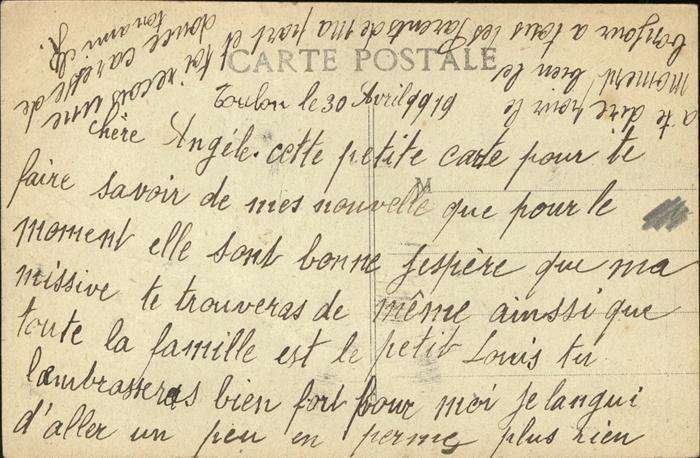 CARTE POSTALE
Toulon le 30 Avril 1919
chère Angéle. cette petite carte pour te
faire savoir de mes nouvelle que pour le
moment elle sont bonne jespère que ma
missive te trouveras de même ainssi que
toute la famille est le petit Louis tu
lambrasseras bien fort pour moi je langui
d'aller un peu en perme plus rien
a te dire pour le
moment bien le
bonjour a tous les Parents de ma part et
toi recois une
douce caresse de
ton ami
M